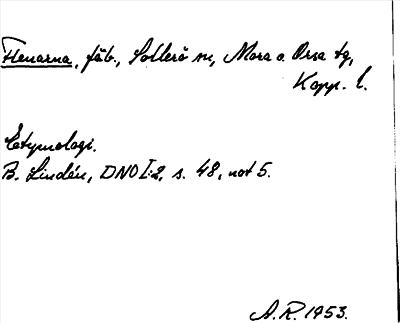 Flenarna, fäb., Sollerö sn, Mora o. Orsa tg,
Kopp. l.
Etymologi.
B. Lindén, DNO I:2, s. 48, not 5.
A.R. 1953.